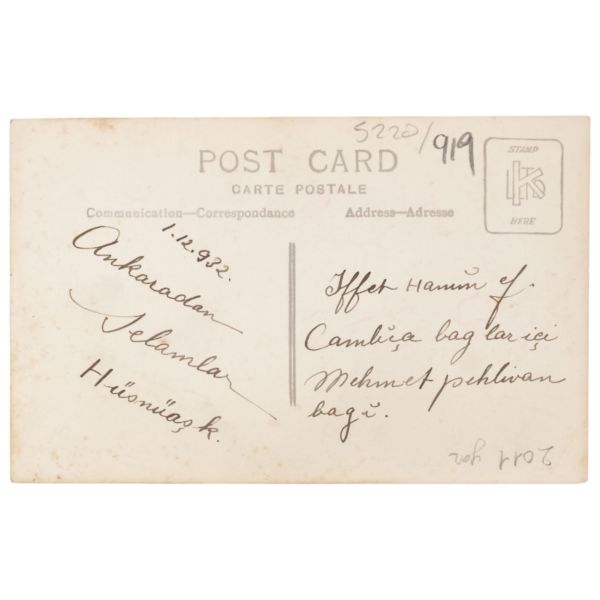 5220/919
POST CARD
CARTE POSTALE
STAMP
HERE
Communication—Correspondance
Address—Adresse
1.12.932.
Ankaradan
Selamlar
Hüsnüaşk.
Iffet Hanım ef.
Camlıça bağlar içi
Mehmet pehlivan
bağı.